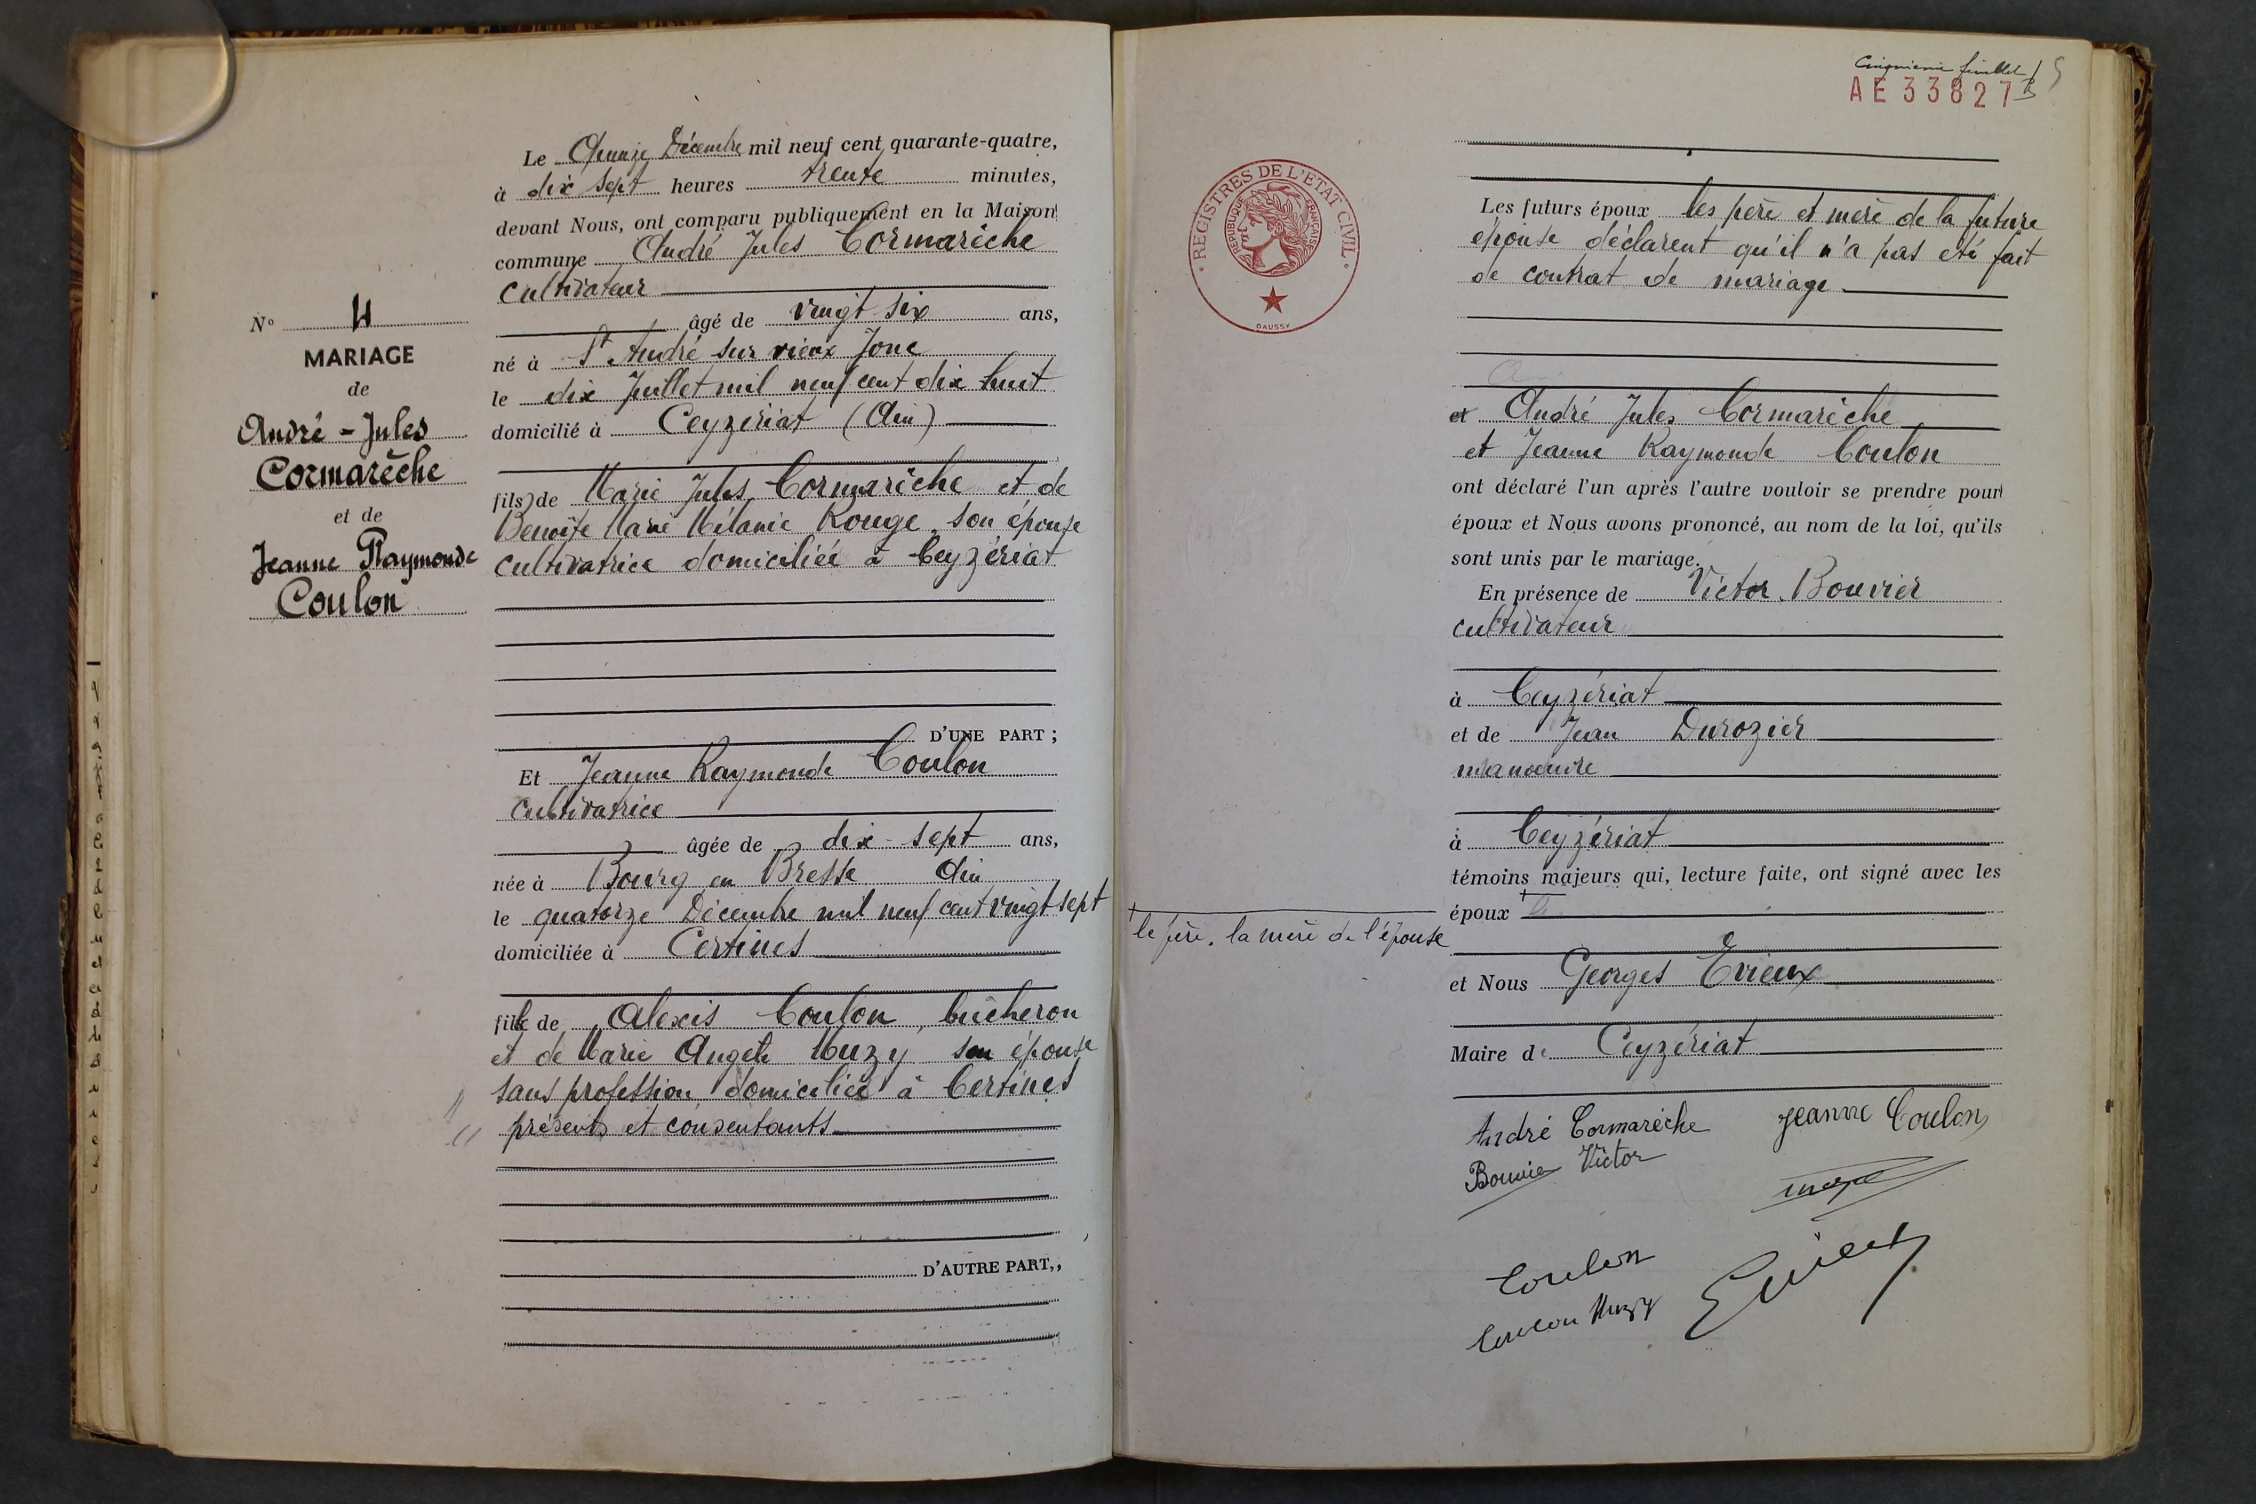 Le Quinze Décembre mil neuf cent quarante-quatre,
à dix sept heures trente minutes,
devant Nous, ont comparu publiquement en la Maison
commune André Jules Cormarèche
cultivateur
âgé de vingt six ans,
né à St André sur vieux Jonc
le dix Juillet mil neuf cent dix huit
domicilié à Ceyzériat (Ain)
fils de Marie Jules Cormarèche et de
Benoîte Marie Mélanie Rouge, son épouse
cultivatrice domiciliée à Ceyzériat
D'UNE PART ;
N° 4
MARIAGE
de
André - Jules
Cormarèche
et de
Jeanne Raymonde
Coulon
Et Jeanne Raymonde Coulon
cultivatrice
âgée de dix-sept ans,
née à Bourg en Bresse Ain
le quatorze Décembre mil neuf cent vingt sept
domiciliée à Certines
fille de Alexis Coulon, bûcheron
et de Marie Angèle Muzy son épouse
sans profession domiciliée à Certines
présents et consentants
D'AUTRE PART,
Cinquième feuillet
5
AE33827
REGISTRES DE L'ÉTAT CIVIL
RÉPUBLIQUE FRANÇAISE
DAUSSY
Les futurs époux les père et mère de la future
épouse déclarent qu'il n'a pas été fait
de contrat de mariage
et André Jules Cormarèche
et Jeanne Raymonde Coulon
ont déclaré l'un après l'autre vouloir se prendre pour
époux et Nous avons prononcé, au nom de la loi, qu'ils
sont unis par le mariage.
En présence de Victor Bouvier
cultivateur
à Ceyzériat
et de Jean Durozier
manoeuvre
à Ceyzériat
témoins majeurs qui, lecture faite, ont signé avec les
époux
le père, la mère de l'épouse
et Nous Georges Evieux
Maire de Ceyzériat
André Cormarèche Jeanne Coulon
Bouvier Victor
Coulon
Coulon Muzy
Evieux